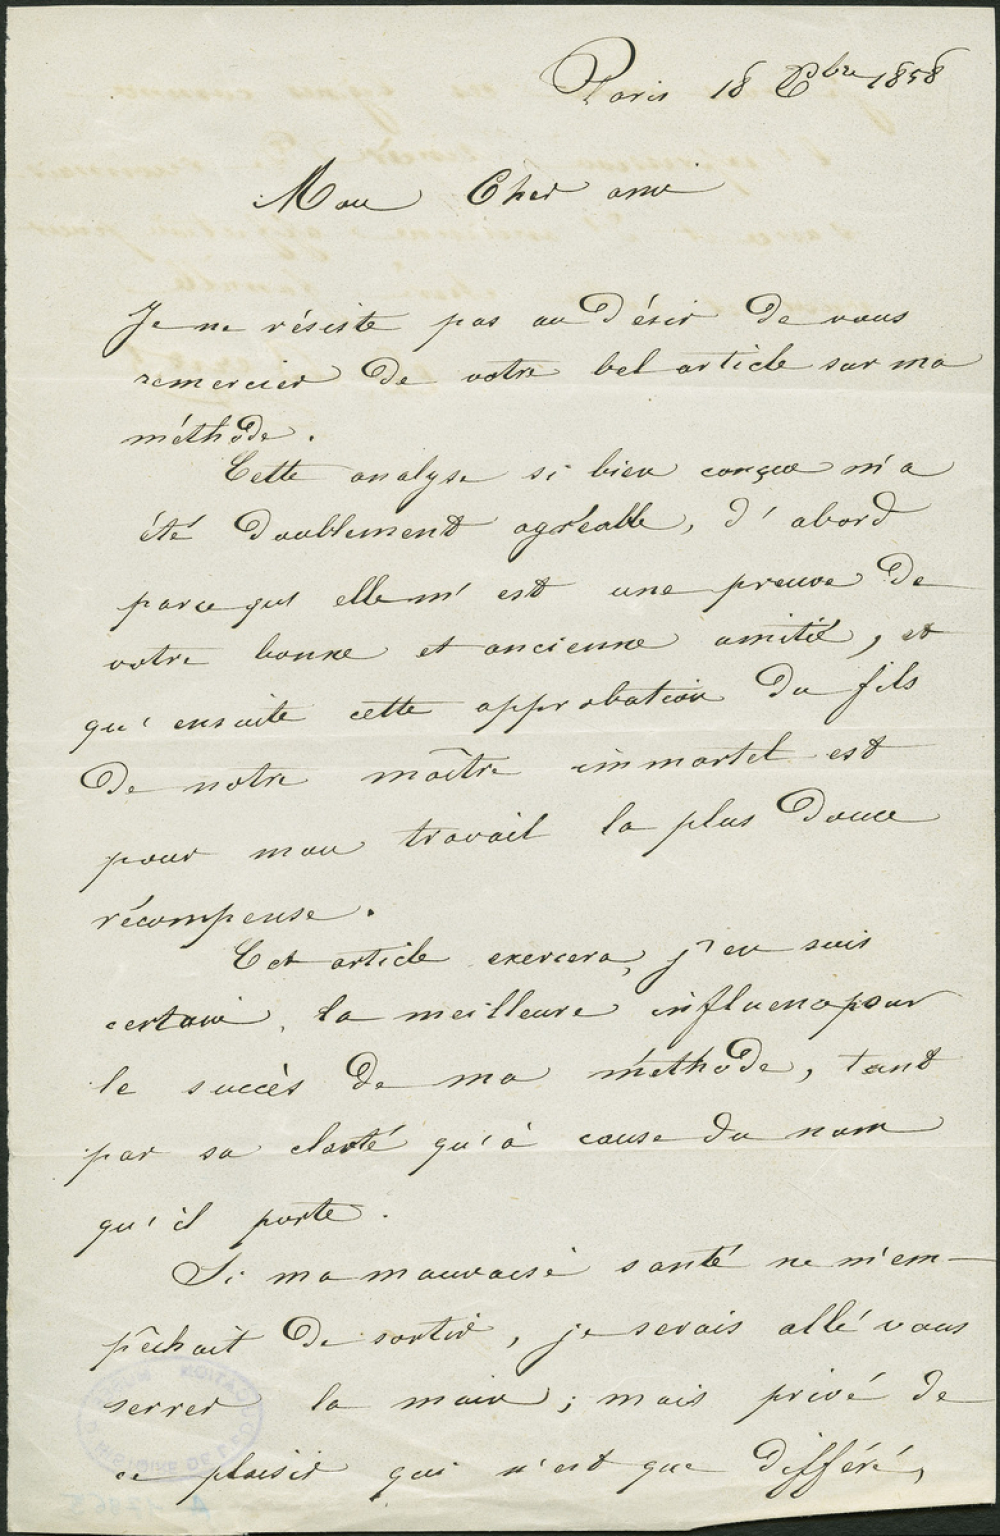 Paris 18 Xbre 1858
Mon Cher ami
Je ne résiste pas au désir de vous
remercier de votre bel article sur ma
méthode.
Cette analyse si bien conçue m'a
été doublement agréable, d'abord
parceque elle m'est une preuve de
votre bonne et ancienne amitié, et
qu'ensuite cette approbation du fils
de notre maître immortel est
pour mon travail la plus douce
récompense.
Cet article exercera, j'en suis
certain, la meilleure influence pour
le succès de ma méthode, tant
par sa clarté qu'à cause du nom
qu'il porte.
Si ma mauvaise santé ne m'em-
pêchait de sortir, je serais allé vous
serrer la main ; mais privé de
ce plaisir qui n'est que différé,